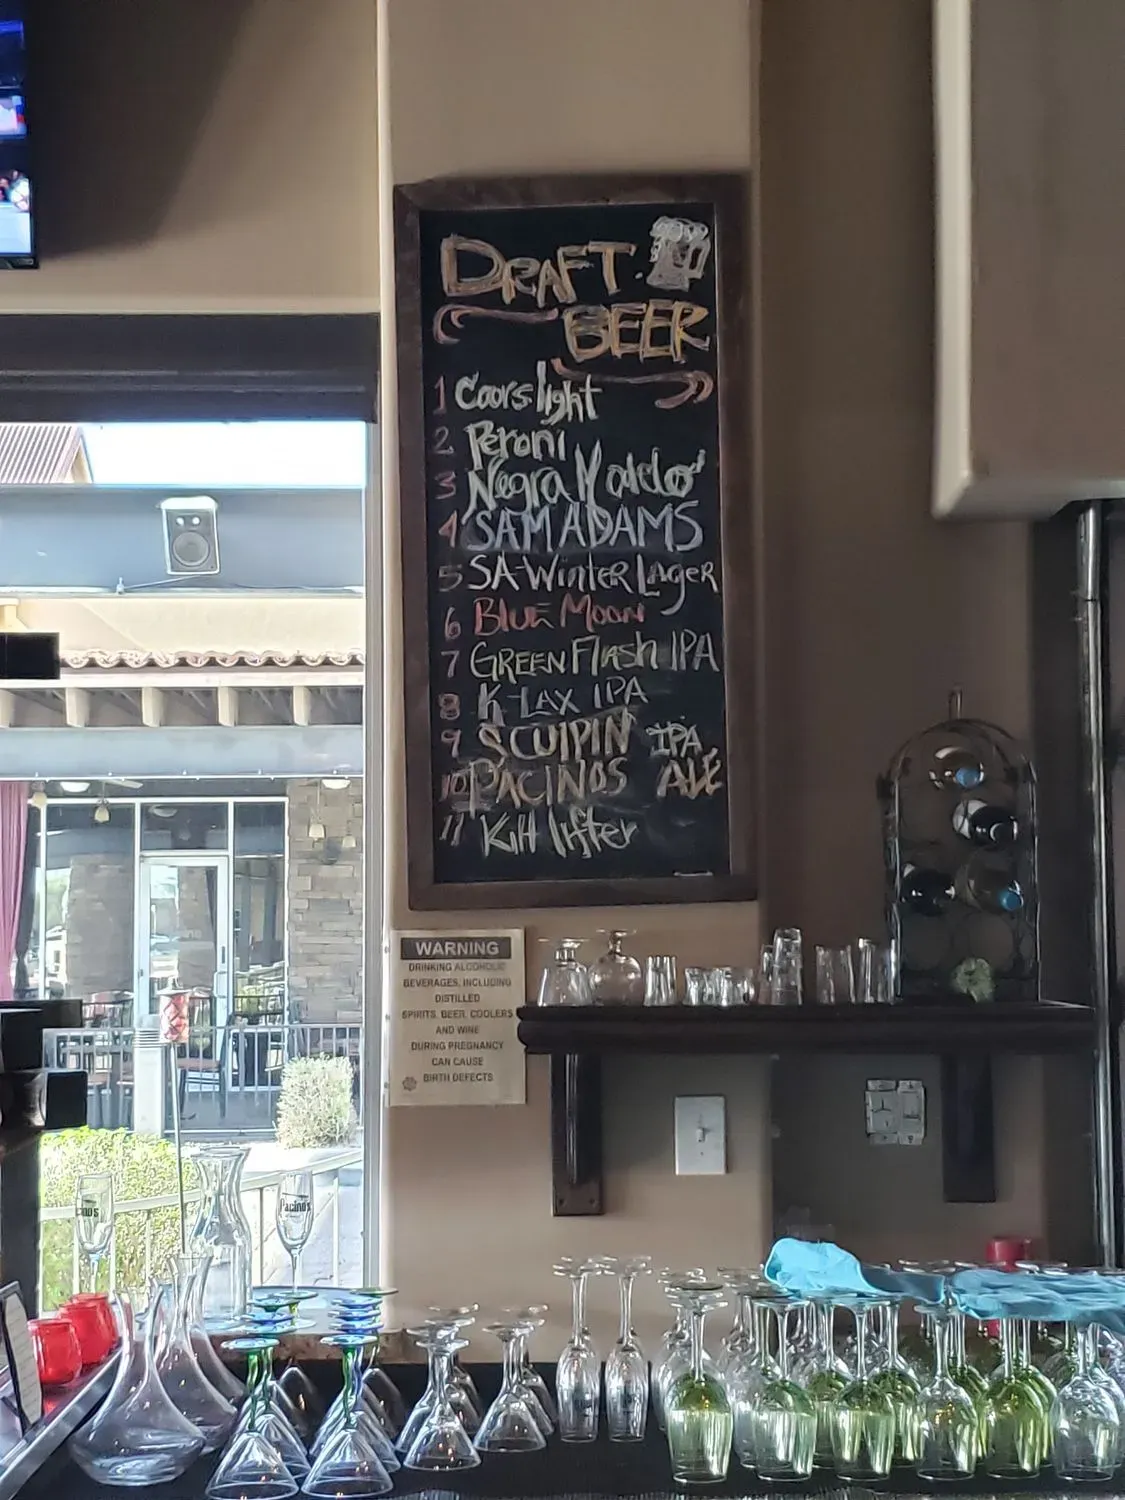 DRAFT
BEER
1 Coors light
2 Peroni
3 Negra Modelo
4 SAM ADAMS
5 SA-Winter Lager
6 BLUE MOON
7 GREEN Flash IPA
8 K-LAX IPA
9 SCULPIN IPA
10 PACINOS ALE
11 Kilt lifter
WARNING
DRINKING ALCOHOLIC
BEVERAGES, INCLUDING
DISTILLED
SPIRITS, BEER, COOLERS
AND WINE
DURING PREGNANCY
CAN CAUSE
BIRTH DEFECTS
Pacino's